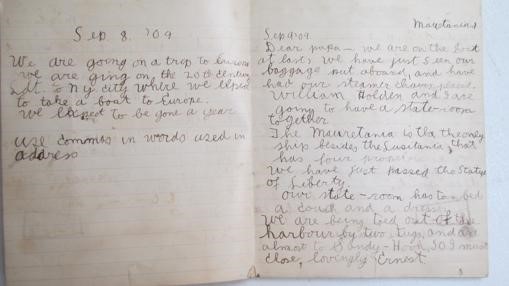 Sep. 8. '09
We are going on a trip to Europe
we are going on, the 20th century
Ldt. to N.Y city where we expect
to take a boat to Europe.
We expect to be gone a year
use commas in words used in
address
Mauretania
Sep 9 '09.
Dear papa — we are on the boat
at last, we have just seen our
baggage put aboard, and have
had our steamer chairs placed.
William Holden and I are
going to have a state-room
together.
The Mauretania is the the only
ship besides the Lusitania, that
has four
We have just passed the Statue
of Liberty.
our state-room has to bed
a couch and a
We are being toed out of the
harbour by two tugs, and are
almost to Sandy-Hook, so I must
close, lovingly Ernest.